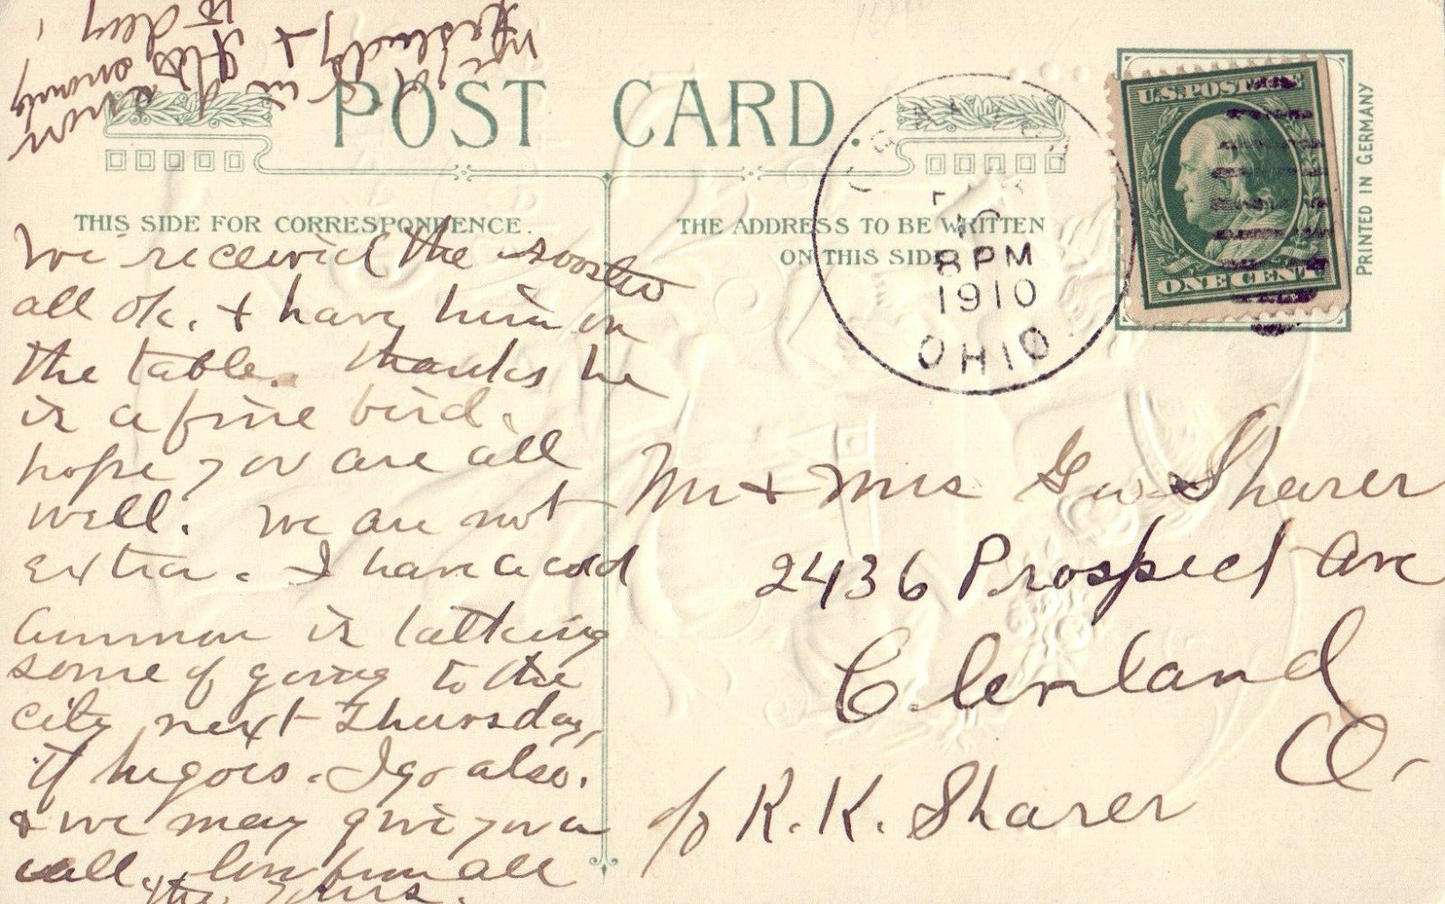 POST CARD.
THIS SIDE FOR CORRESPONDENCE.
We received the rooster
all ok. + have him on
the table. Thanks he
is a fine bird.
hope you are all
well. We are not
extra. I have a cold
Ammon is talking
some of going to the
city next Thursday,
if he goes. I go also.
+ we may give you a
call. Love from all
the
THE ADDRESS TO BE WRITTEN
ON THIS SIDE
8 PM
1910
OHIO
U.S. POSTAGE
ONE CENT
PRINTED IN GERMANY
Mr + Mrs G W Sharer
2436 Prospect Ave
Cleveland
O.
c/o R. K. Sharer